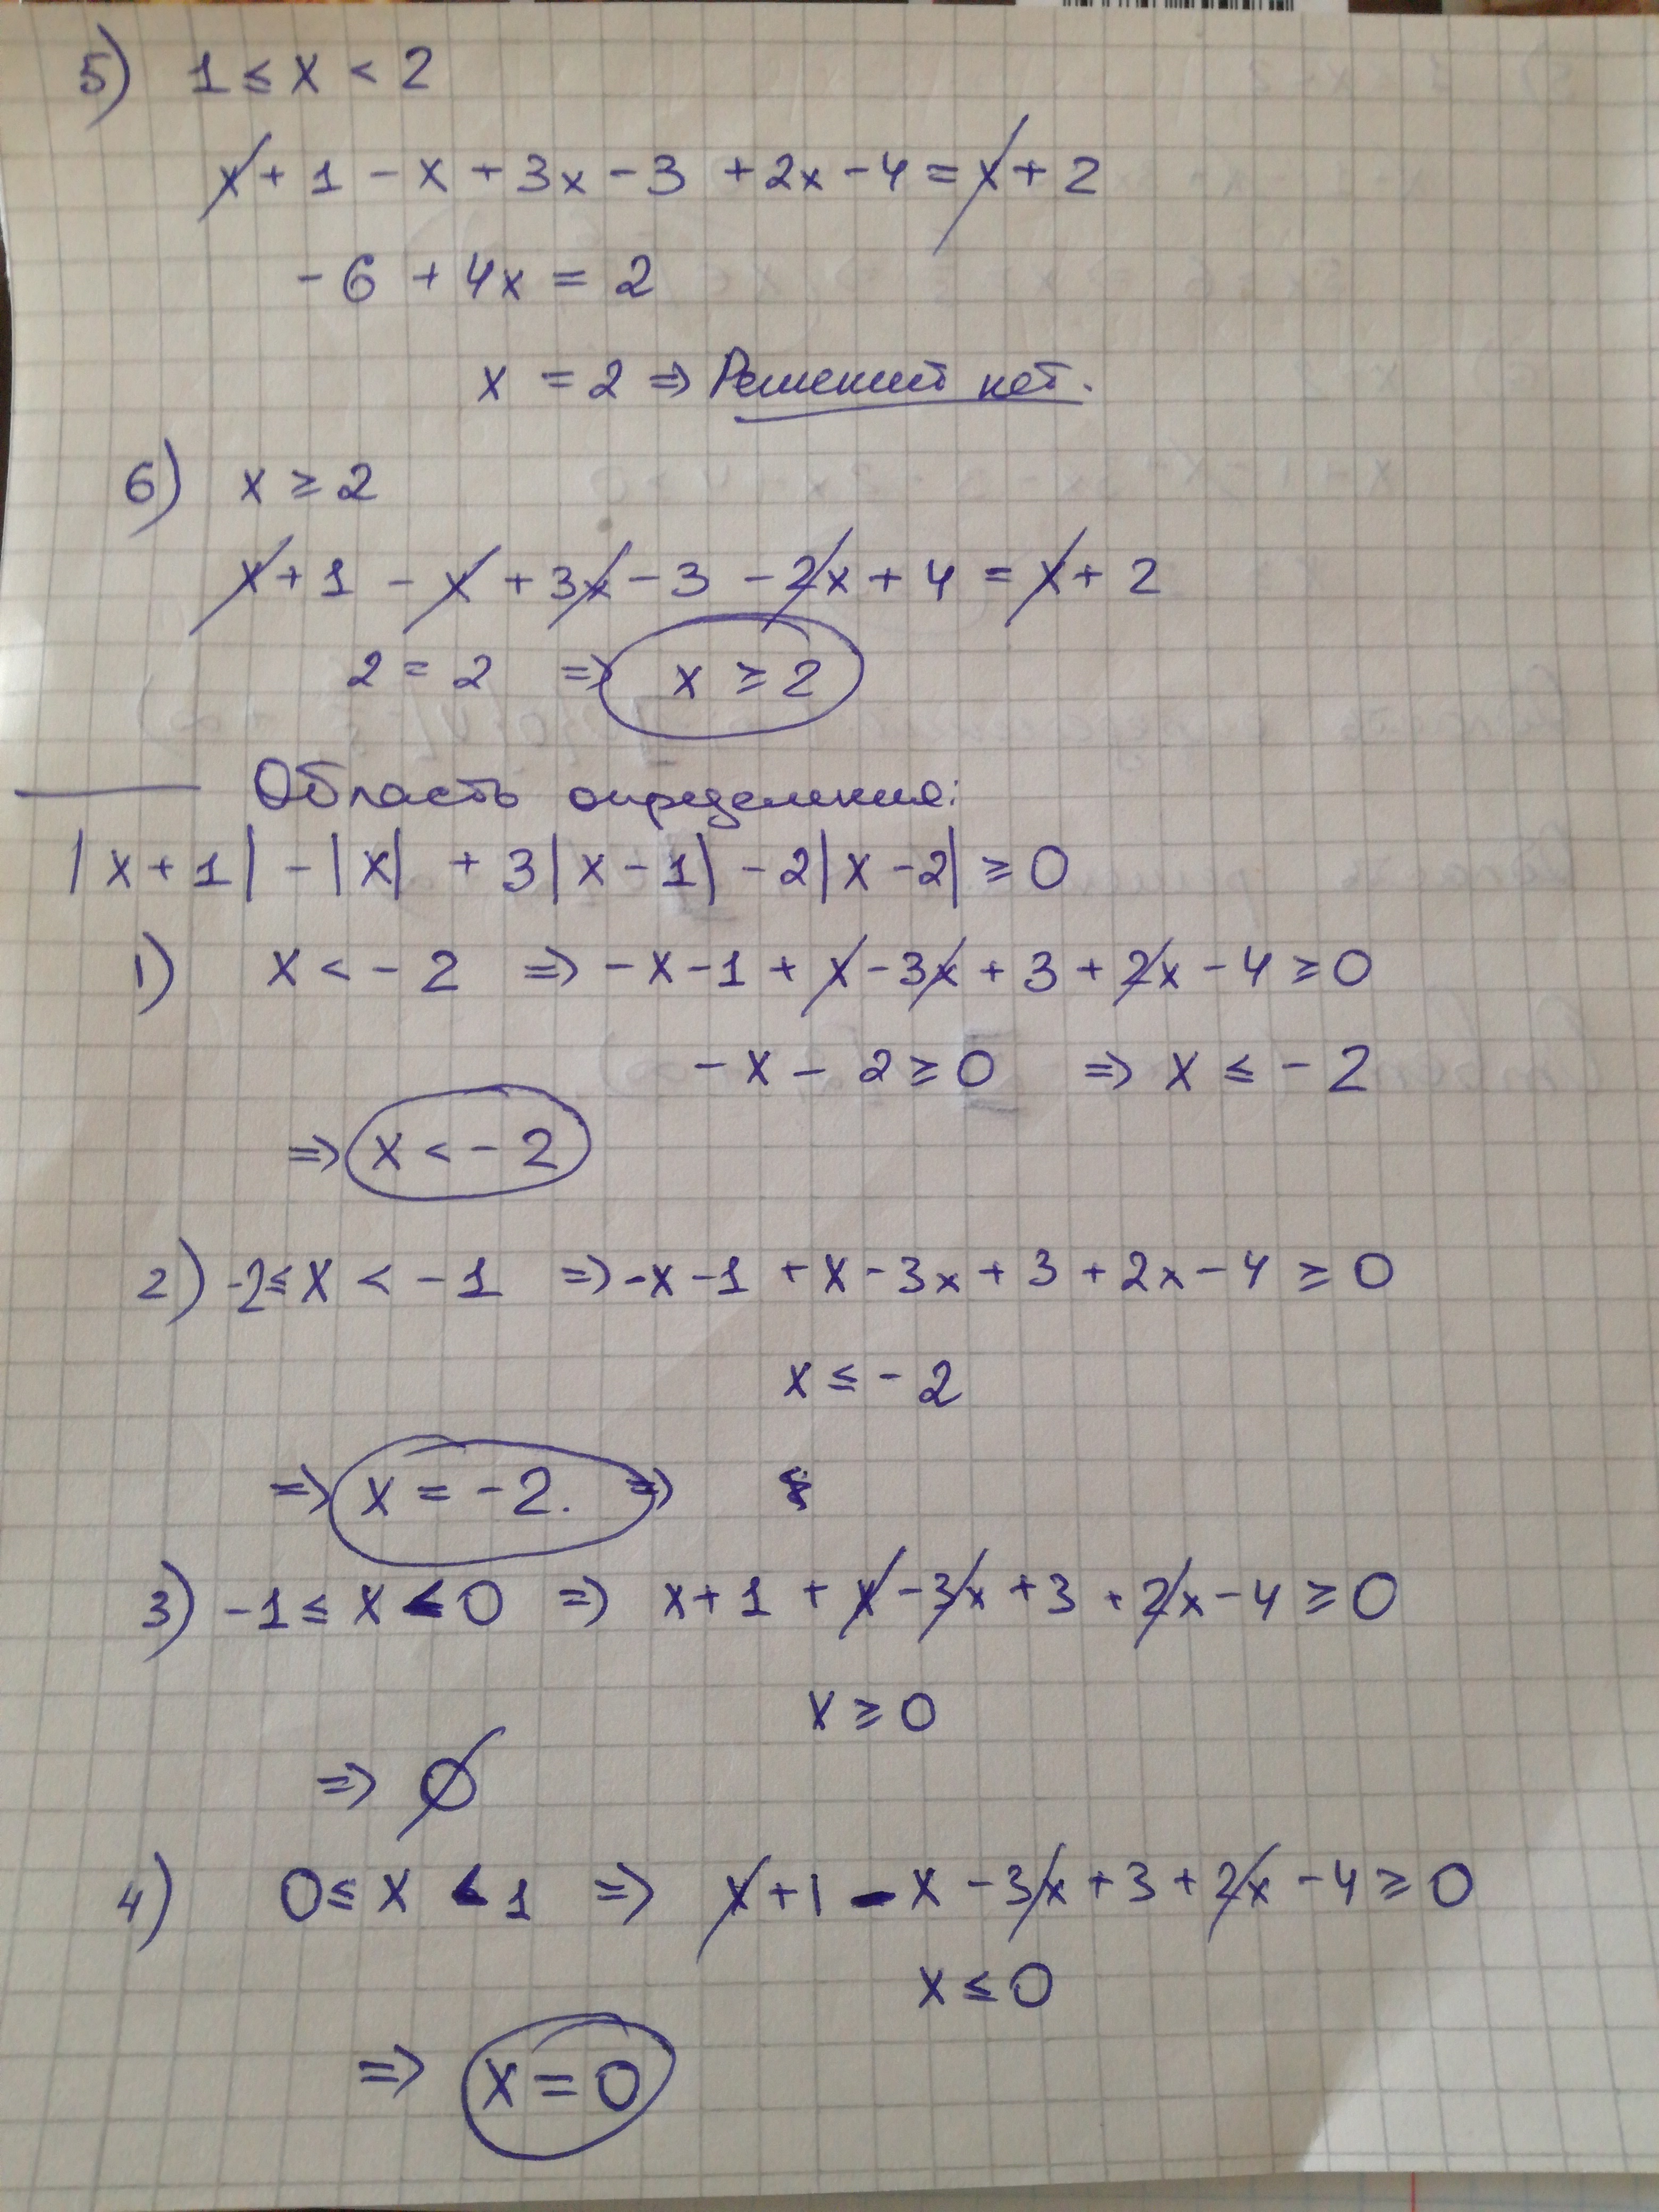 5) 1 ≤ x < 2
x + 1 - x + 3x - 3 + 2x - 4 = x + 2
- 6 + 4x = 2
x = 2 ⇒ Решений нет.
6) x ≥ 2
x + 1 - x + 3x - 3 - 2x + 4 = x + 2
2 = 2 ⇒ x ≥ 2
Область определения:
|x + 1| - |x| + 3|x - 1| - 2|x - 2| ≥ 0
1) x < - 2 ⇒ - x - 1 + x - 3x + 3 + 2x - 4 ≥ 0
- x - 2 ≥ 0 ⇒ x ≤ - 2
⇒ x < - 2
2) -2 ≤ x < - 1 ⇒ - x - 1 + x - 3x + 3 + 2x - 4 ≥ 0
x ≤ - 2
⇒ x = - 2. ⇒
3) - 1 ≤ x < 0 ⇒ x + 1 + x - 3x + 3 + 2x - 4 ≥ 0
x ≥ 0
⇒ ∅
4) 0 ≤ x < 1 ⇒ x + 1 - x - 3x + 3 + 2x - 4 ≥ 0
x ≤ 0
⇒ x = 0